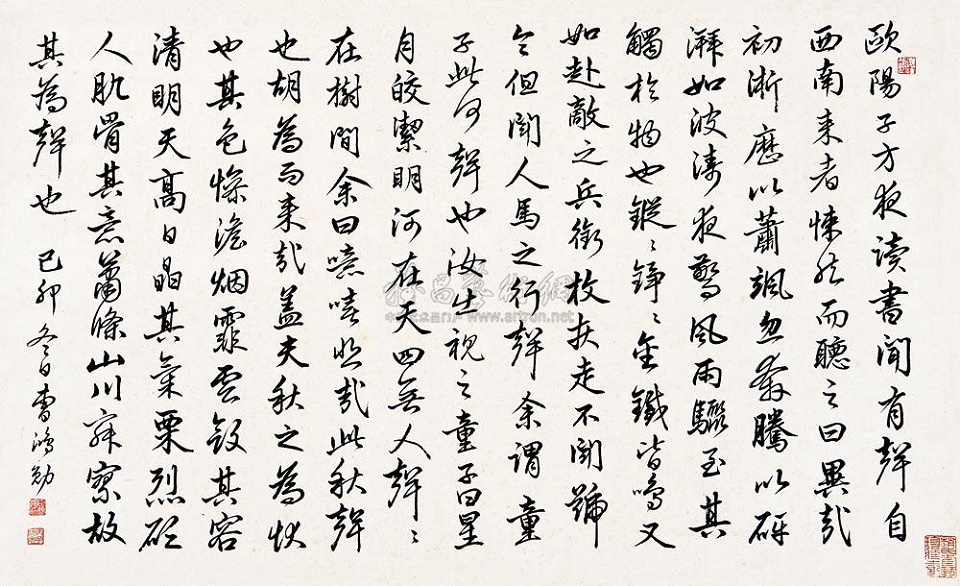 歐陽子方夜读書聞有聲自
西南来者悚然而聽之曰異哉
初淅歷以蕭颯忽奔騰以砰
湃如波涛夜驚風雨驟至其
觸於物也鏦〻錚〻金鐵皆鳴又
如赴敵之兵銜枚疾走不聞號
令但聞人馬之行聲余謂童
子此何聲也汝出視之童子曰星
月皎潔明河在天四無人聲〻
在樹間余曰噫嘻悲哉此秋聲
也胡為而来哉盖夫秋之為状
也其色惨澹烟霏雲斂其容
清明天高日晶其氣栗烈砭
人肌骨其意蕭條山川寂寥故
其為聲也 己卯冬日曹鴻勛
雅昌藝術網
www.artron.net